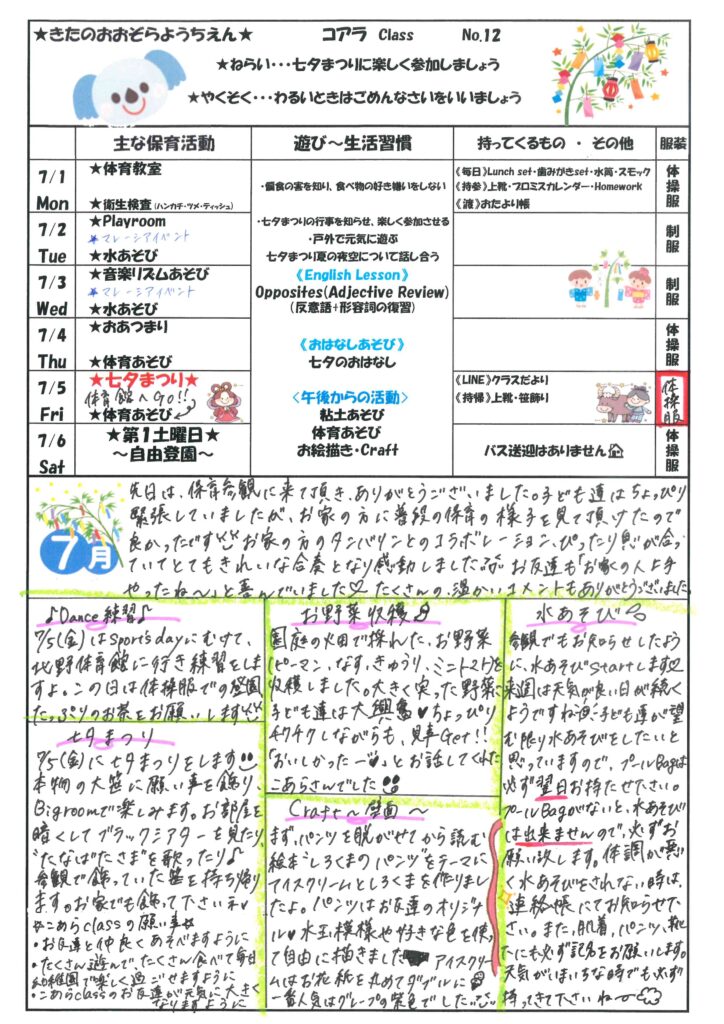 ★きたのおおぞらようちえん★ コアラ Class No.12
★ねらい・・・七夕まつりに楽しく参加しましょう
★やくそく・・・わるいときはごめんなさいをいいましょう
主な保育活動 遊び～生活習慣 持ってくるもの ・ その他 服装
7/1 Mon
★体育教室
★衛生検査(ハンカチ・ツメ・ティッシュ)
・偏食の害を知り、食べ物の好き嫌いをしない
《毎日》Lunch set・歯みがきset・水筒・スモック
《持参》上靴・プロミスカレンダー・Homework
《渡》おたより帳
体操服
7/2 Tue
★Playroom
★マレーシアイベント
★水あそび
・七夕まつりの行事を知らせ、楽しく参加させる
・戸外で元気に遊ぶ
七夕まつり夏の夜空について話し合う
制服
7/3 Wed
★音楽リズムあそび
★マレーシアイベント
★水あそび
《English Lesson》
Opposites(Adjective Review)
(反意語+形容詞の復習)
制服
7/4 Thu
★おあつまり
★体育あそび
《おはなしあそび》
七夕のおはなし
体操服
7/5 Fri
★七夕まつり★
体育館へGO!!
★体育あそび
<午後からの活動>
粘土あそび
体育あそび
お絵描き・Craft
《LINE》クラスだより
《持帰》上靴・笹飾り
体操服
7/6 Sat
★第１土曜日★
～自由登園～
バス送迎はありません
体操服
7月
先日は、保育参観に来て頂き、ありがとうございました。子ども達はちょっぴり
緊張していましたが、お家の方に普段の保育の様子を見て頂けたので
良かったです お家の方のタンバリンとのコラボレーション、ぴったり息が合っ
ていてとてもきれいな合奏となり感動しました お友達も「お家の人上手
やったね～」と喜んでいました♡ たくさんの、温かいコメントもありがとうございました
♪Dance練習♪
7/5(金)はSportsdayにむけて、
北野体育館に行き練習をしま
すよ。この日は体操服での登園
たっぷりのお茶をお願いします
七夕まつり
7/5(金)に七夕まつりをします
本物の大笹に願い事を飾り、
Bigroomで楽しみます。お部屋を
暗くしてブラックシアターを見たり、
"たなばたさま"を歌ったり♪
参観で飾っていた笹を持ち帰り
ます。お家でも飾って下さいネ
☆こあらclassの願い事☆
・お友達と仲良くあそべますように
・たくさん遊んで、たくさん食べて毎日
幼稚園で楽しく過ごせますように
・こあらclassのお友達が元気に大きく
なりますように
お野菜収穫
園庭の畑で採れた、お野菜
(ピーマン、なす、きゅうり、ミニトマト)を
収穫しました。大きく実った野菜に
子ども達は大興奮♥ちょっぴり
チクチクしながらも、見事Get!!
「おいしかったー♥」とお話してくれた
こあらさんでした
Craft～壁面～
まず、パンツを脱がせてから読む
絵本"しろくまのパンツ"をテーマに
アイスクリームとしろくまを作りまし
たよ。パンツはお友達のオリジナ
ル♥水玉模様や好きな色を使っ
て自由に描きました アイスクリー
ムはお花紙を丸めてダブルに
一番人気はグレープの紫色でした
水あそび
参観でもお知らせしたよう
に、水あそびstartします♡
来週は天気が良い日が続く
ようですね 子ども達が望
む限り水あそびをしたいと
思っていますので、プールBagは
必ず翌日お持たせ下さい。
プールBagがないと、水あそび
は出来ませんので、必ずお
願い致します。体調が悪い
く水あそびをされない時は、
連絡帳にてお知らせ下
さい。また、肌着、パンツ、靴
下にも必ず記名をお願いします。
天気がいまいちな時でも必ず
持ってきて下さいね～